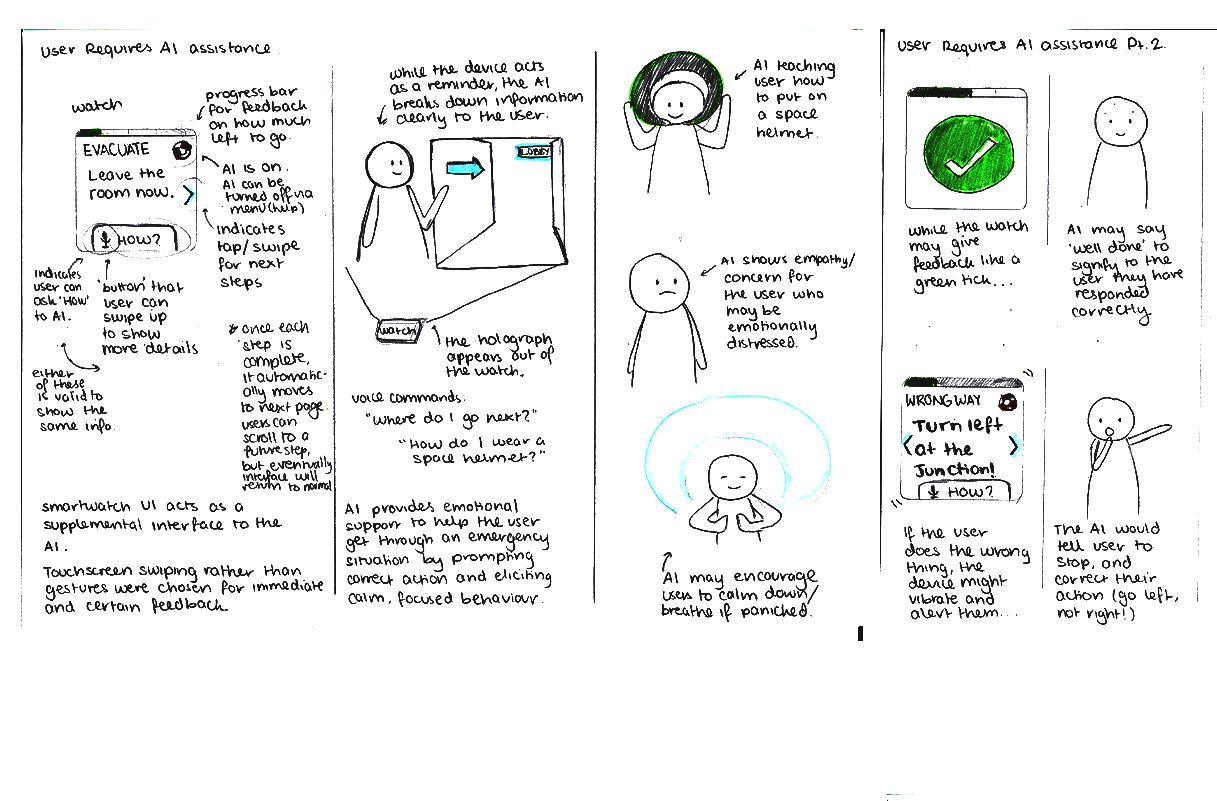 User Requires AI assistance.
watch
progress bar
for feedback
on how much
left to go.
EVACUATE
Leave the
room now.
HOW?
AI is on.
AI can be
turned off via
menu (help)
indicates
tap/swipe
for next
steps
indicates
user can
ask 'How'
to AI.
'button' that
user can
swipe up
to show
more details
either
of these
is valid to
show the
same info.
* once each
step is
complete,
it automatic-
ally moves
to next page.
users can
scroll to a
future step,
but eventually
interface will
return to normal
smartwatch UI acts as a
supplemental interface to the
AI.
Touchscreen swiping rather than
gestures were chosen for immediate
and certain feedback
while the device acts
as a reminder, the AI
breaks down information
clearly to the user.
LOBBY
watch
the holograph
appears out of
the watch.
voice commands:
"Where do I go next?"
"How do I wear a
space helmet?"
AI provides emotional
support to help the user
get through an emergency
situation by prompting
correct action and eliciting
calm, focused behaviour.
AI teaching
user how
to put on
a space
helmet.
AI shows empathy/
concern for
the user who
may be
emotionally
distressed.
AI may encourage
users to calm down/
breathe if panicked.
User Requires AI assistance Pt.2.
while the watch
may give
feedback like a
green tick...
AI may say
'well done' to
signify to the
user they have
responded
correctly
WRONG WAY
Turn left
at the
Junction!
HOW?
If the user
does the wrong
thing, the
device might
vibrate and
alert them...
The AI would
tell user to
stop, and
correct their
action (go left,
not right!)